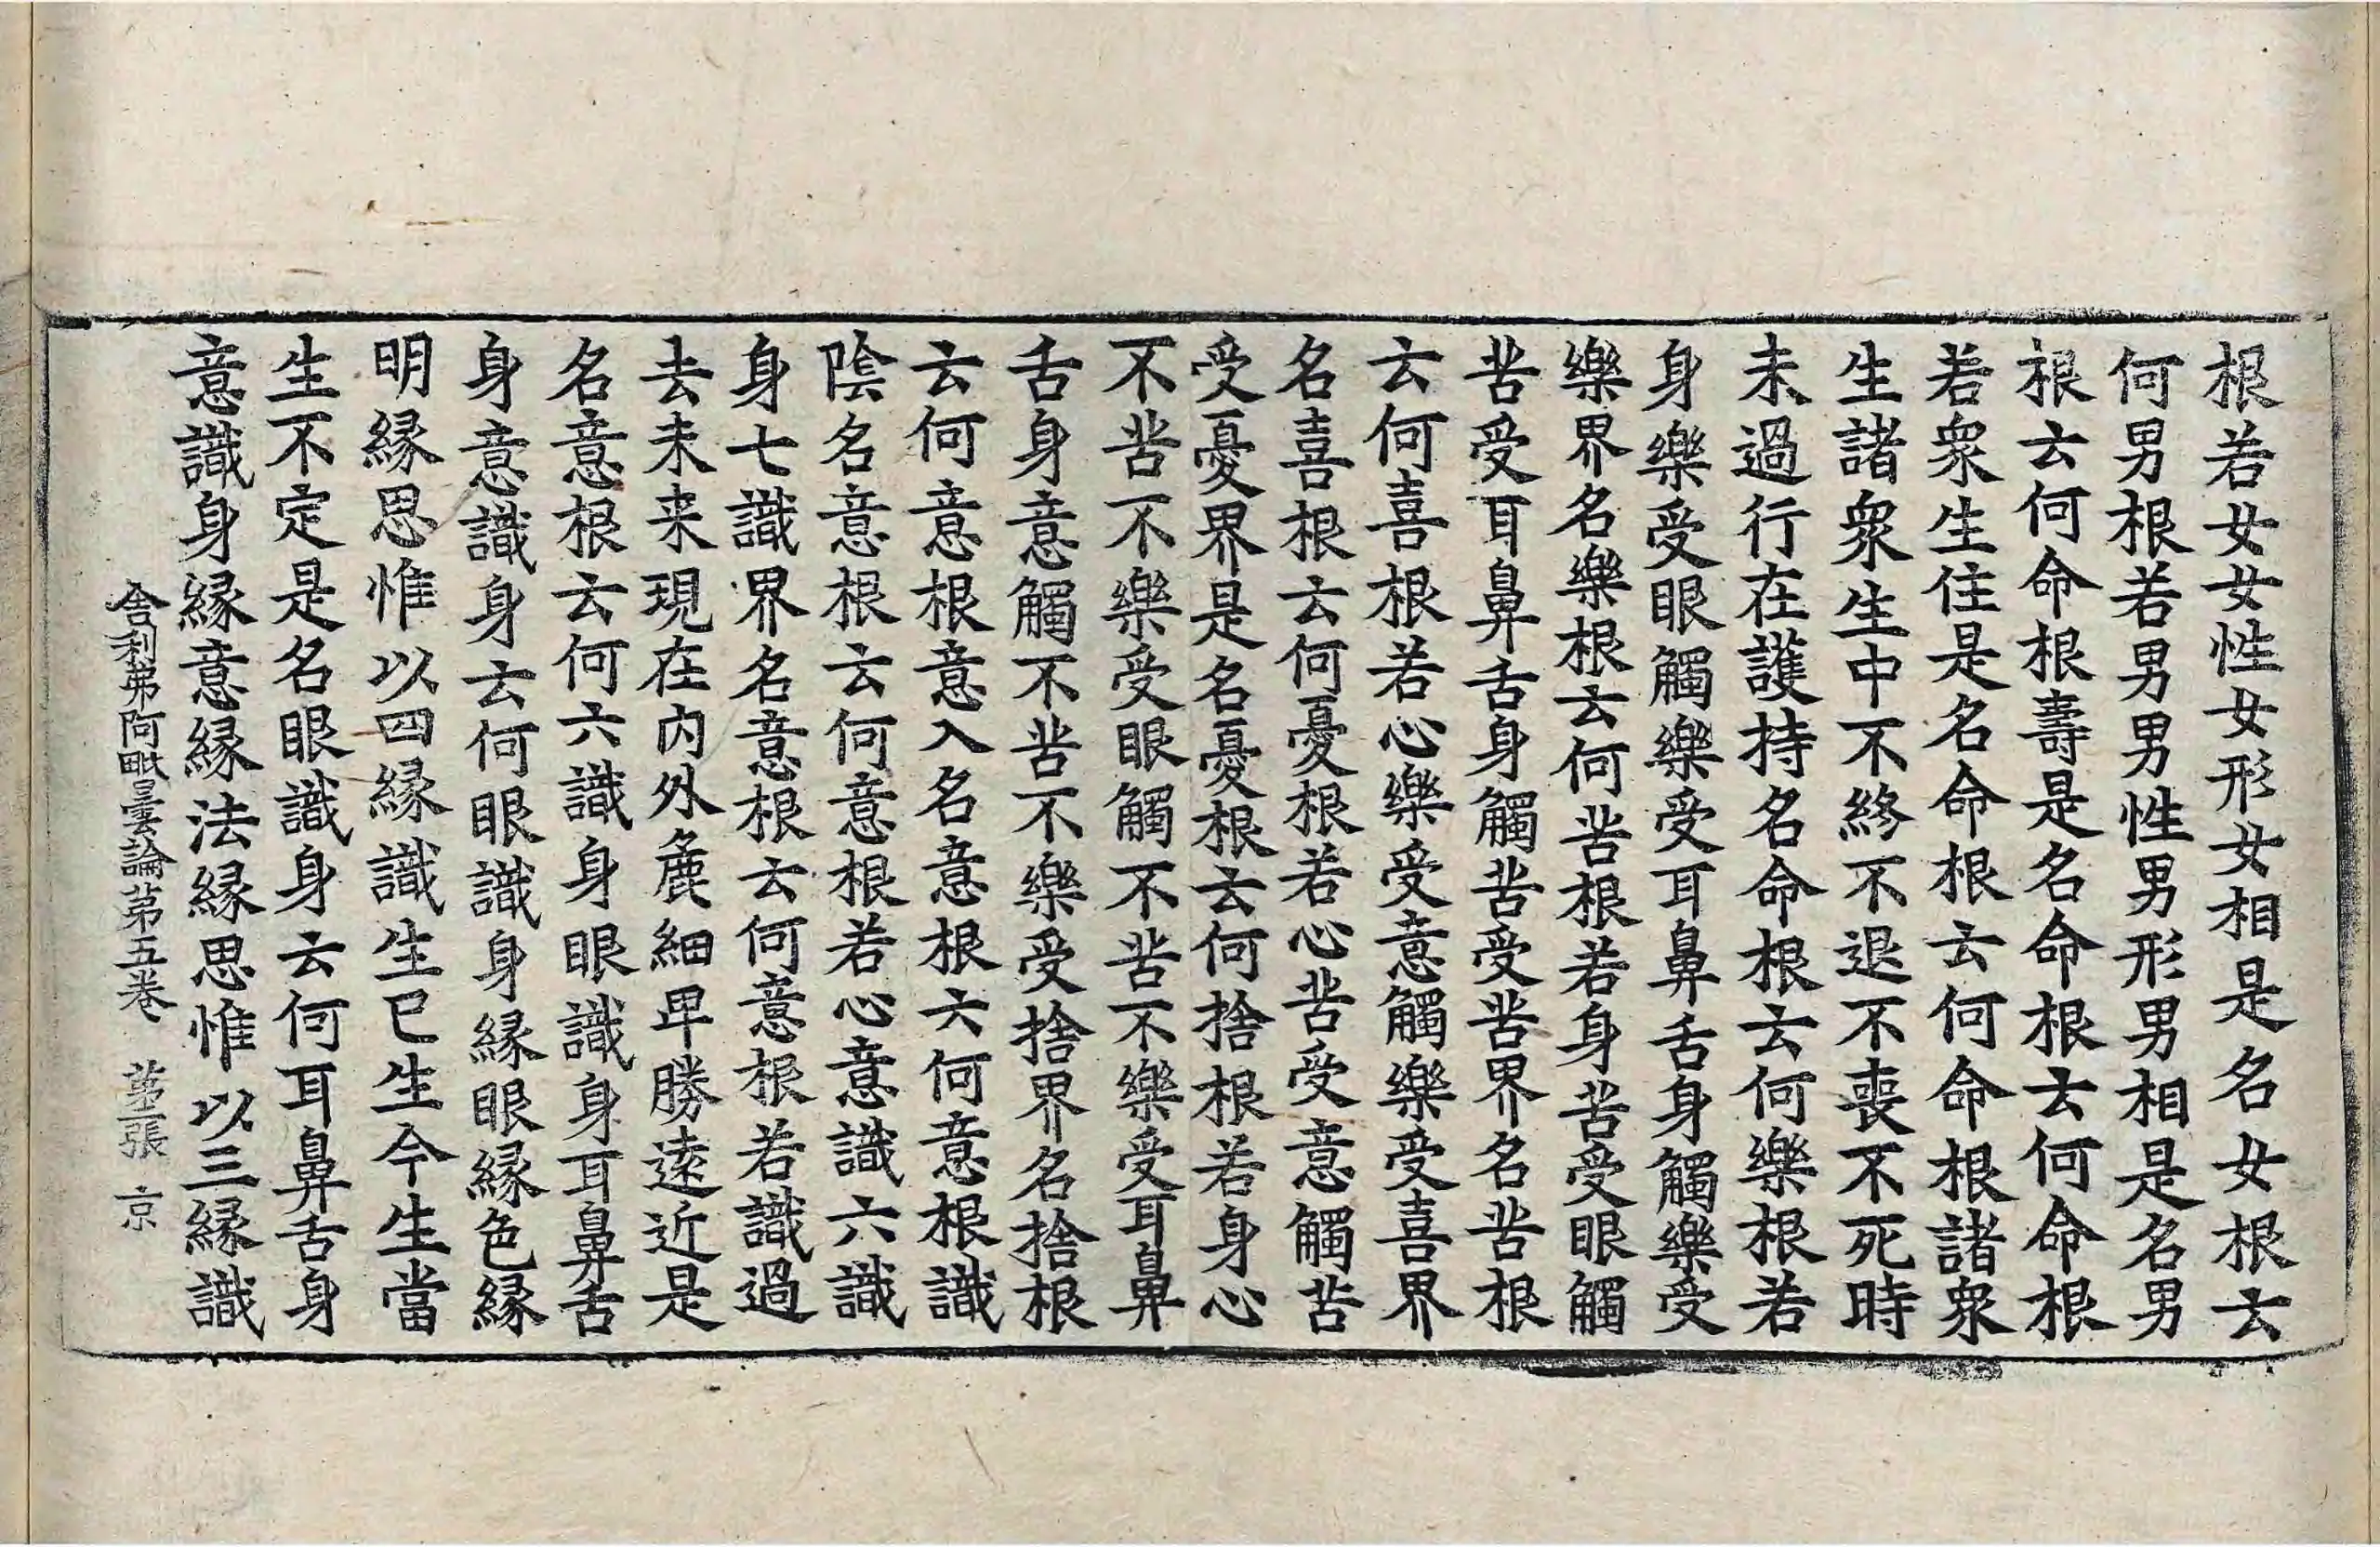 根若女女性女形女相是名女根云
何男根若男男性男形男相是名男
根云何命根壽是名命根云何命根
若衆生住是名命根云何命根諸衆
生諸衆生中不終不退不喪不死時
未過行在護持名命根云何樂根若
身樂受眼觸樂受耳鼻舌身觸樂受
樂界名樂根云何苦根若身苦受眼觸
苦受耳鼻舌身觸苦受苦界名苦根
云何喜根若心樂受意觸樂受喜界
名喜根云何憂根若心苦受意觸苦
受憂界是名憂根云何捨根若身心
不苦不樂受眼觸不苦不樂受耳鼻
舌身意觸不苦不樂受捨界名捨根
云何意根意入名意根云何意根識
陰名意根云何意根若心意識六識
身七識界名意根云何意根若識過
去未来現在内外麁細卑勝遠近是
名意根云何六識身眼識身耳鼻舌
身意識身云何眼識身縁眼縁色縁
明縁思惟以四縁識生已生今生當
生不定是名眼識身云何耳鼻舌身
意識身縁意縁法縁思惟以三縁識
舎利弗阿毗曇論第五卷 第二張 京